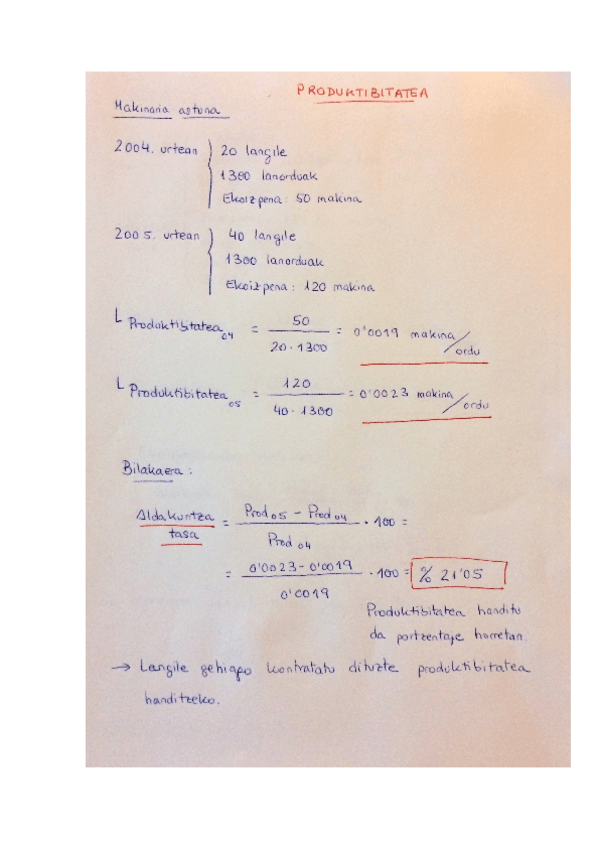 PRODUKTIBITATEA
Makinaria astuna
2004. urtean 20 langile
1300 lanorduak
Ekoizpena: 50 makina
2005. urtean 40 langile
1300 lanorduak
Ekoizpena: 120 makina
L Produktibitatea04 = 50 / 20·1300 = 0'0019 makina/ordu
L Produktibitatea05 = 120 / 40·1300 = 0'0023 makina/ordu
Bilakaera:
Aldakuntza tasa = Prod05 - Prod04 / Prod04 · 100 =
= 0'0023 - 0'0019 / 0'0019 · 100 = % 21'05
Produktibitatea handitu
da portzentaje horretan.
→ Langile gehiago kontratatu dituzte produktibitatea
handitzeko.